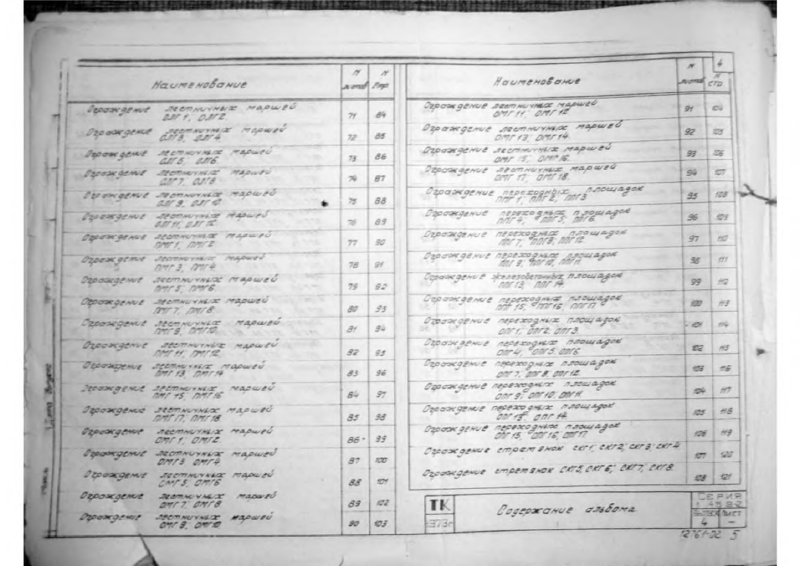 4
Наименование
N листов
N стр.
Ограждение лестничных маршей
71 84
Ограждение лестничных маршей
72 85
Ограждение лестничных маршей
ОЛГ5, ОЛГ6
73 86
Ограждение лестничных маршей
ОЛГ7, ОЛГ8
74 87
Ограждение лестничных маршей
ОЛГ9, ОЛГ10
75 88
Ограждение лестничных маршей
ОЛГ11, ОЛГ12
76 89
Ограждение лестничных маршей
ПМГ1, ПМГ2
77 90
Ограждение лестничных маршей
ПМГ3, ПМГ4
78 91
Ограждение лестничных маршей
ПМГ5, ПМГ6
79 92
Ограждение лестничных маршей
ПМГ7, ПМГ8
80 93
Ограждение лестничных маршей
ПМГ9, ПМГ10
81 94
Ограждение лестничных маршей
ПМГ11, ПМГ12
82 95
Ограждение лестничных маршей
83 96
Ограждение лестничных маршей
ПМГ15, ПМГ16
84 97
Ограждение лестничных маршей
ПМГ17, ПМГ18
85 98
Ограждение лестничных маршей
ОМГ1, ОМГ2
86 99
Ограждение лестничных маршей
ОМГ3, ОМГ4
87 100
Ограждение лестничных маршей
ОМГ5, ОМГ6
88 101
Ограждение лестничных маршей
ОМГ7, ОМГ8
89 102
Ограждение лестничных маршей
ОМГ9, ОМГ10
90 103
Наименование
N листов
N стр.
Ограждение лестничных маршей
ОМГ11, ОМГ12
91 104
Ограждение лестничных маршей
ОМГ13, ОМГ14
92 105
Ограждение лестничных маршей
ОМГ15, ОМГ16
93 106
Ограждение лестничных маршей
ОМГ17, ОМГ18
94 107
Ограждение переходных площадок
ППГ1, ППГ2, ППГ3
95 108
Ограждение переходных площадок
ППГ4, ППГ5, ППГ6
96 109
Ограждение переходных площадок
97 110
Ограждение переходных площадок
98 111
Ограждение площадок
ППГ13, ППГ14
99 112
Ограждение переходных площадок
ППГ15, ППГ16, ППГ17
100 113
Ограждение переходных площадок
ОПГ1, ОПГ2, ОПГ3
101 114
Ограждение переходных площадок
ОПГ4, ОПГ5, ОПГ6
102 115
Ограждение переходных площадок
ОПГ7, ОПГ8, ОПГ12
103 116
Ограждение переходных площадок
ОПГ9, ОПГ10, ОПГ11
104 117
Ограждение переходных площадок
ОПГ13, ОПГ14
105 118
Ограждение переходных площадок
ОПГ15, ОПГ16, ОПГ17
106 119
Ограждение стремянок СКГ1, СКГ2, СКГ3, СКГ4
107 120
Ограждение стремянок СКГ5, СКГ6, СКГ7, СКГ8
108 121
ТК
Содержание альбома
Серия
Выпуск Лист
4 –
12761-02 5